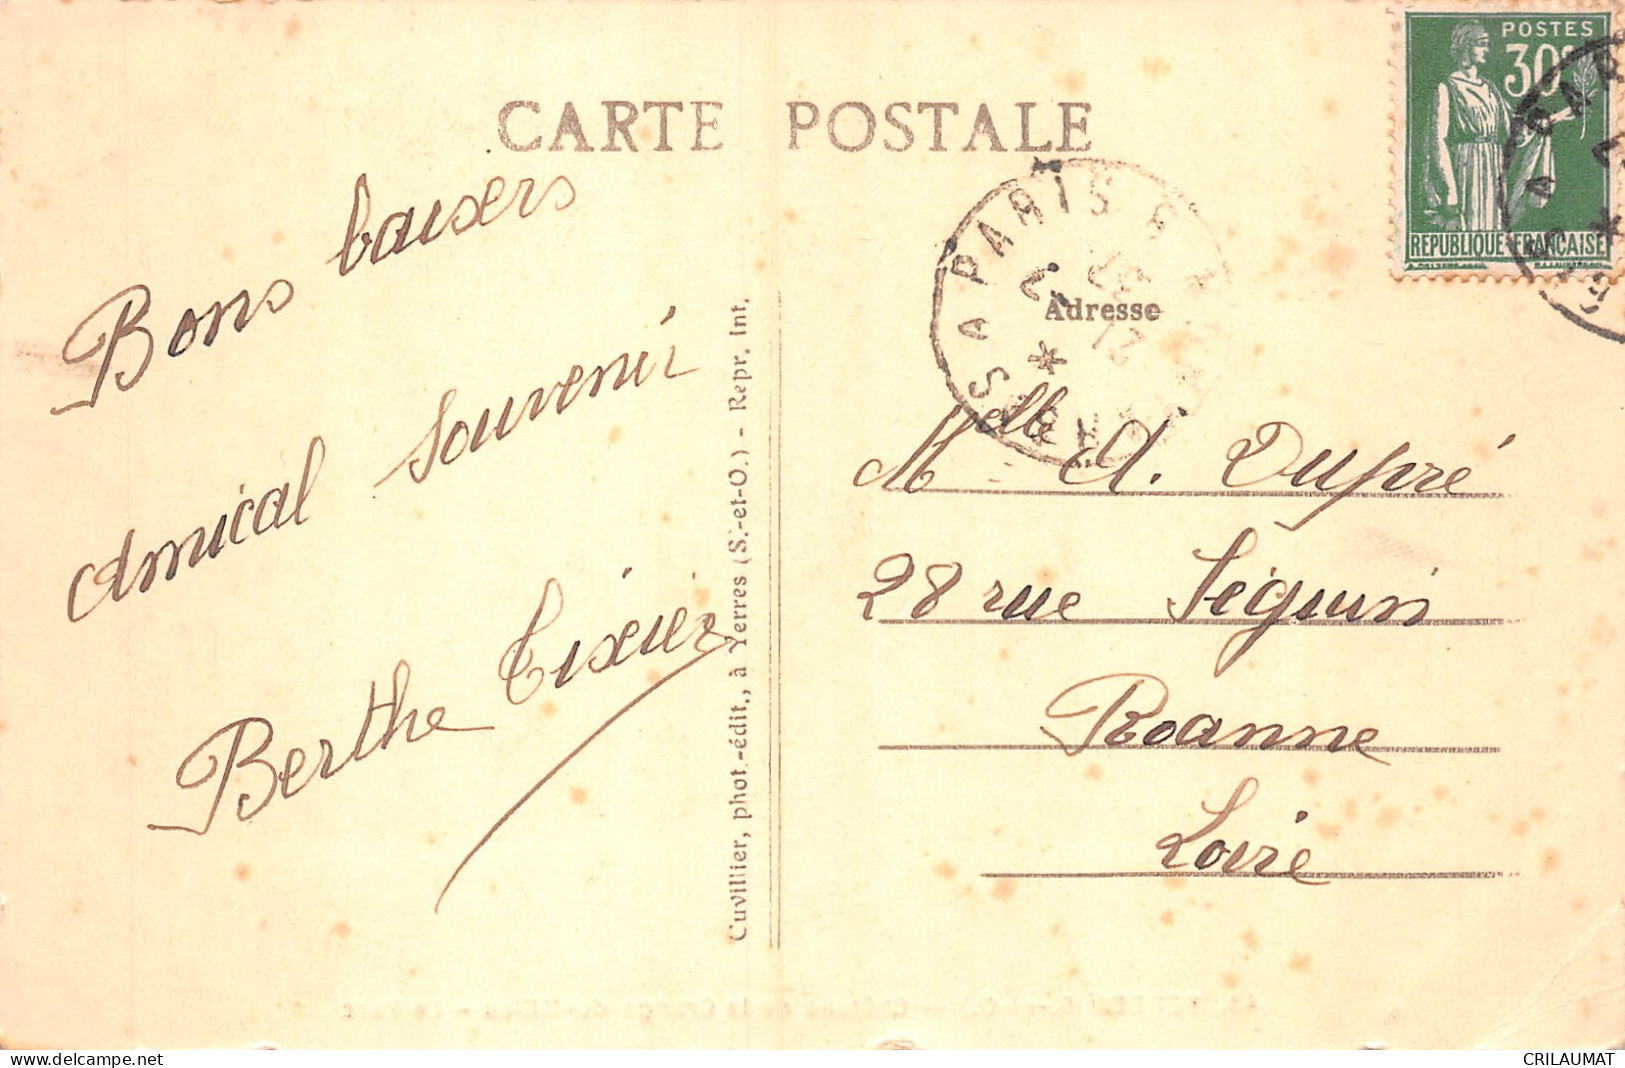 CARTE POSTALE
POSTES
30c
REPUBLIQUE FRANCAISE
Bons baisers
Amical souvenir
Berthe Tixier
Cuvillier, phot.-édit., à Yerres (S.-et-O.) - Repr. Int.
PARIS
Adresse
Melle A. Dupré
28 rue Séguin
Roanne
Loire
https://www.delcampe.net
CRILAUMAT